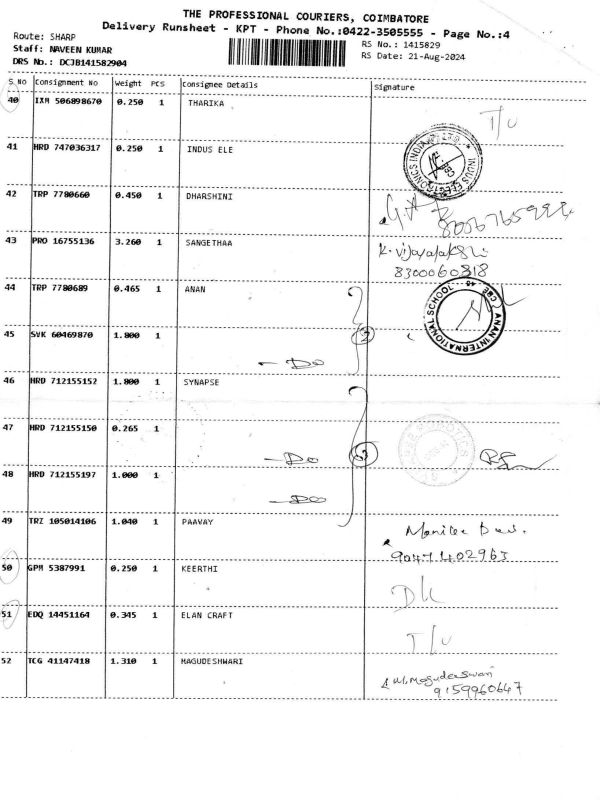 THE PROFESSIONAL COURIERS, COIMBATORE
Delivery Runsheet - KPT - Phone No.:0422-3505555 - Page No.:4
Route: SHARP
Staff: NAVEEN KUMAR
DRS No.: DCJB141582904
RS No.: 1415829
RS Date: 21-Aug-2024
S.No Consignment No Weight PCS Consignee Details Signature
40 IXM 506898670 0.250 1 THARIKA T/U
41 HRD 747036317 0.250 1 INDUS ELE
42 TRP 7780660 0.450 1 DHARSHINI
43 PRO 16755136 3.260 1 SANGETHAA
8300060818
44 TRP 7780689 0.465 1 ANAN
ANAN INTERNATIONAL SCHOOL CBE
45 SVK 60469870 1.800 1
- Do
46 HRD 712155152 1.800 1 SYNAPSE
47 HRD 712155150 0.265 1
- Do
48 HRD 712155197 1.000 1
- Do
49 TRZ 105014106 1.040 1 PAAVAY
9047402963
50 GPM 5387991 0.250 1 KEERTHI
DL
51 EDQ 14451164 0.345 1 ELAN CRAFT
T/U
52 TCG 41147418 1.310 1 MAGUDESHWARI
9159960647